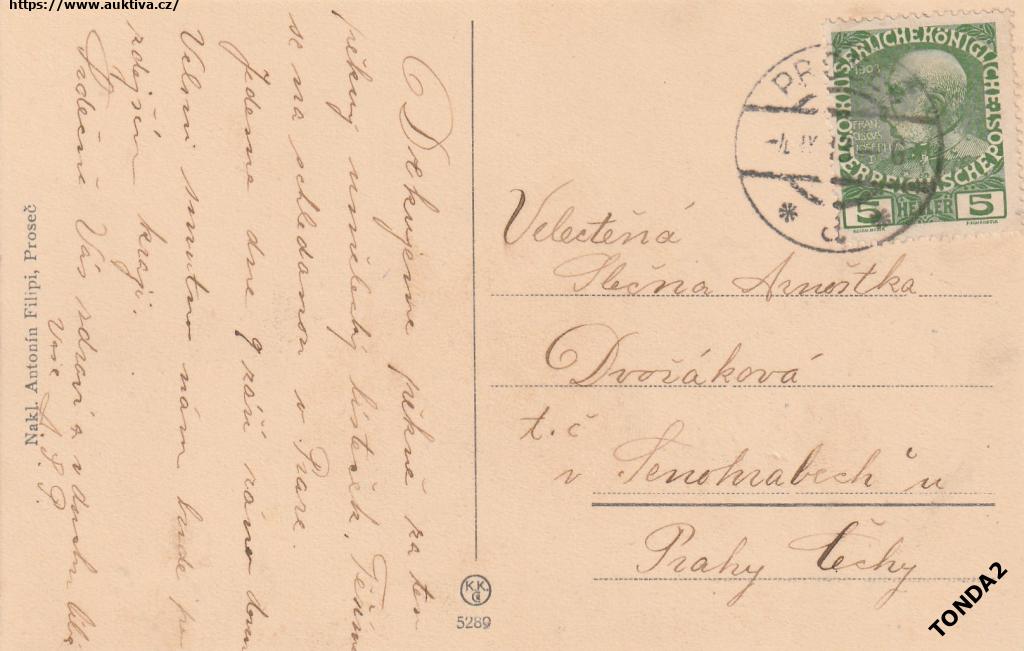 https://www.auktiva.cz/
Děkujeme pěkně za ten
pěkný umělecký lísteček. Těším
se na schledanou v Praze.
Jedeme dne 9 září ráno dom
Velmi smutno nám bude po
zdejším kraji.
Srdečně Vás zdraví a v duchu líbá
Vaše
Nakl. Antonín Filipi, Proseč
K.K.
5289
KAISERLICHEKÖNIGLICHE
ÖSTERREICHISCHE POST
1908
5 HELLER 5
Velectěná
Slečna Arnoštka
Dvořáková
t. č
v Senohrabech u
Prahy Čechy
TONDA2